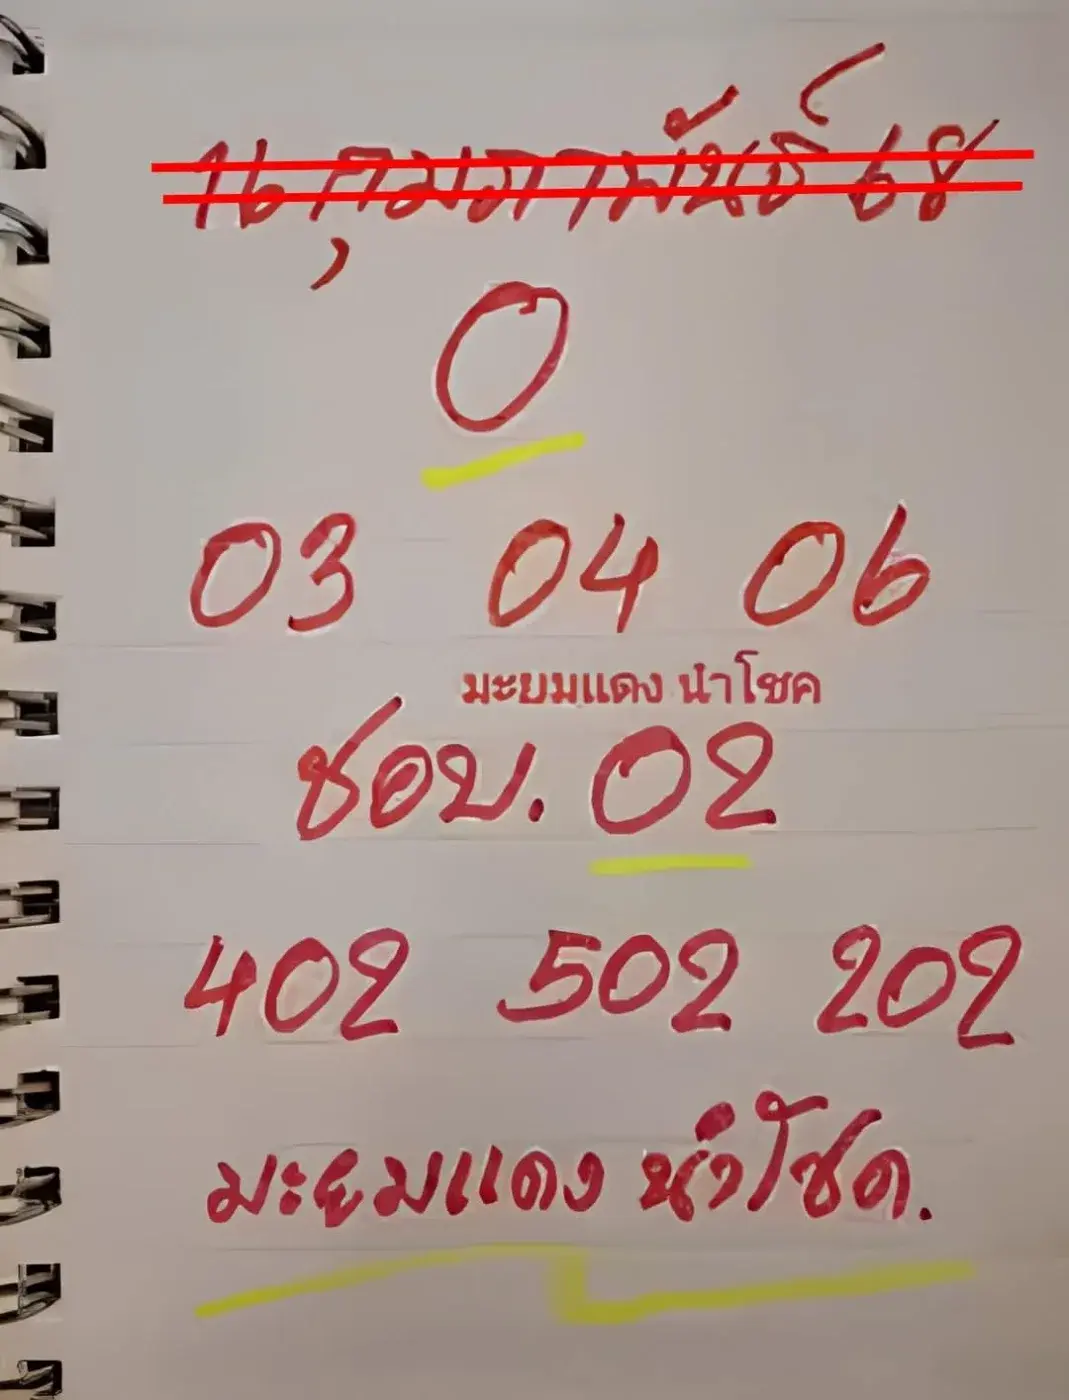 16 กุมภาพันธ์ 68
0
03 04 06
มะยมแดง นำโชค
ชอบ. 02
402 502 202
มะยมแดง นำโชค.